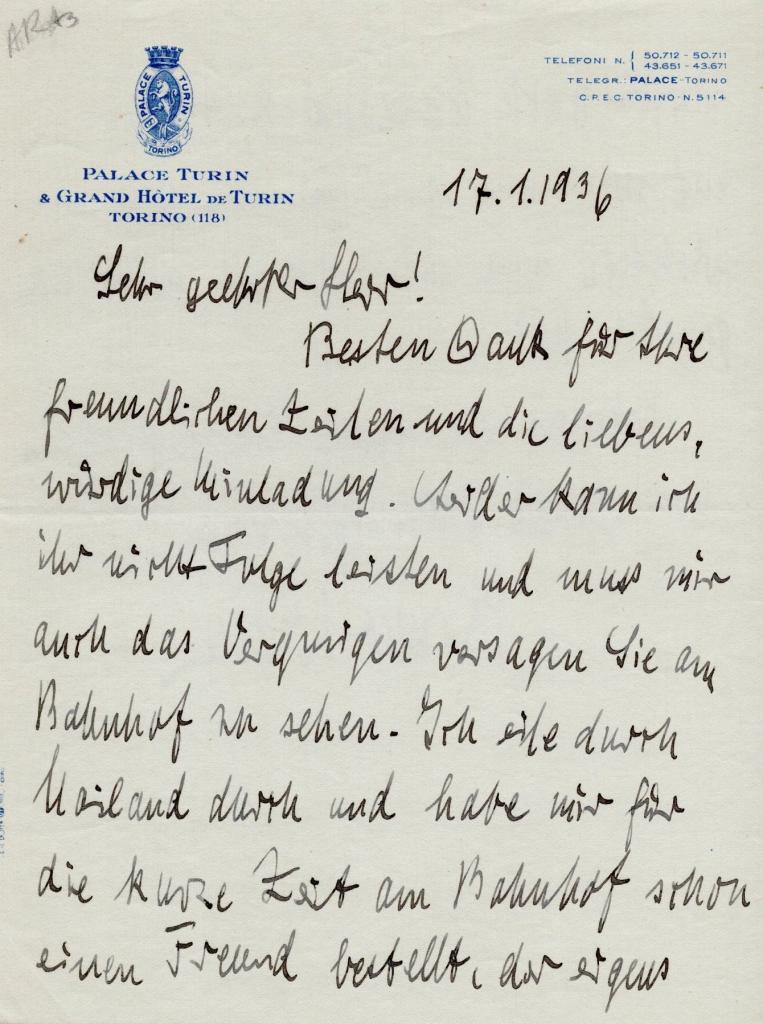 ARA3
PALACE TURIN
TORINO
PALACE TURIN
& GRAND HÔTEL DE TURIN
TORINO (118)
TELEFONI N. 50.712 - 50.711
43.651 - 43.671
TELEGR.: PALACE-TORINO
C.P.E.C. TORINO - N. 5114
17.1.1936
Sehr geehrter Herr!
Besten Dank für Ihre
freundlichen Zeilen und die liebens,
würdige Einladung. Leider kann ich
ihr nicht Folge leisten und muss mir
auch das Vergnügen versagen Sie am
Bahnhof zu sehen. Ich eile durch
Mailand durch und habe mir für
die kurze Zeit am Bahnhof schon
einen Freund bestellt, der eigens